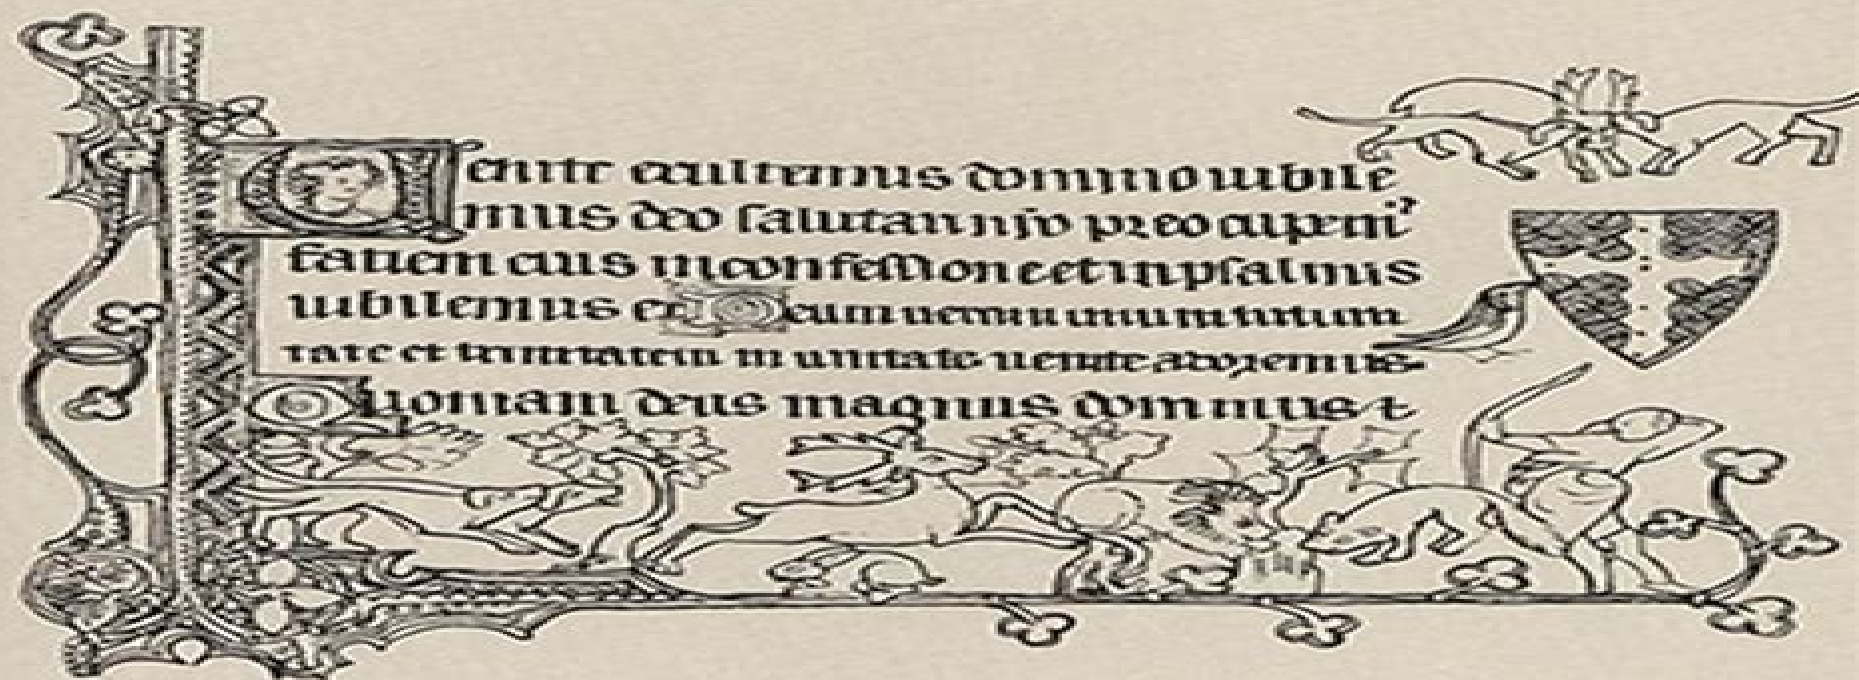 Venite exultemus domino iubile
mus deo salutari nr̃o preocupem
faciem eius in confessione et in psalmis
iubilemus ei Deum verum unum in trini
tate et trinitatem in unitate uenite adoremus
Quoniam deus magnus dominus t